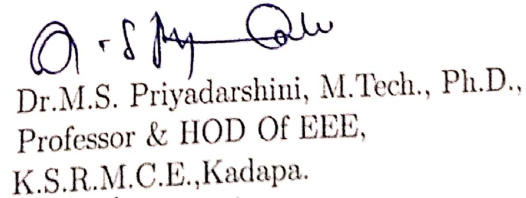 Dr.M.S. Priyadarshini, M.Tech., Ph.D.,
Professor & HOD Of EEE,
K.S.R.M.C.E.,Kadapa.